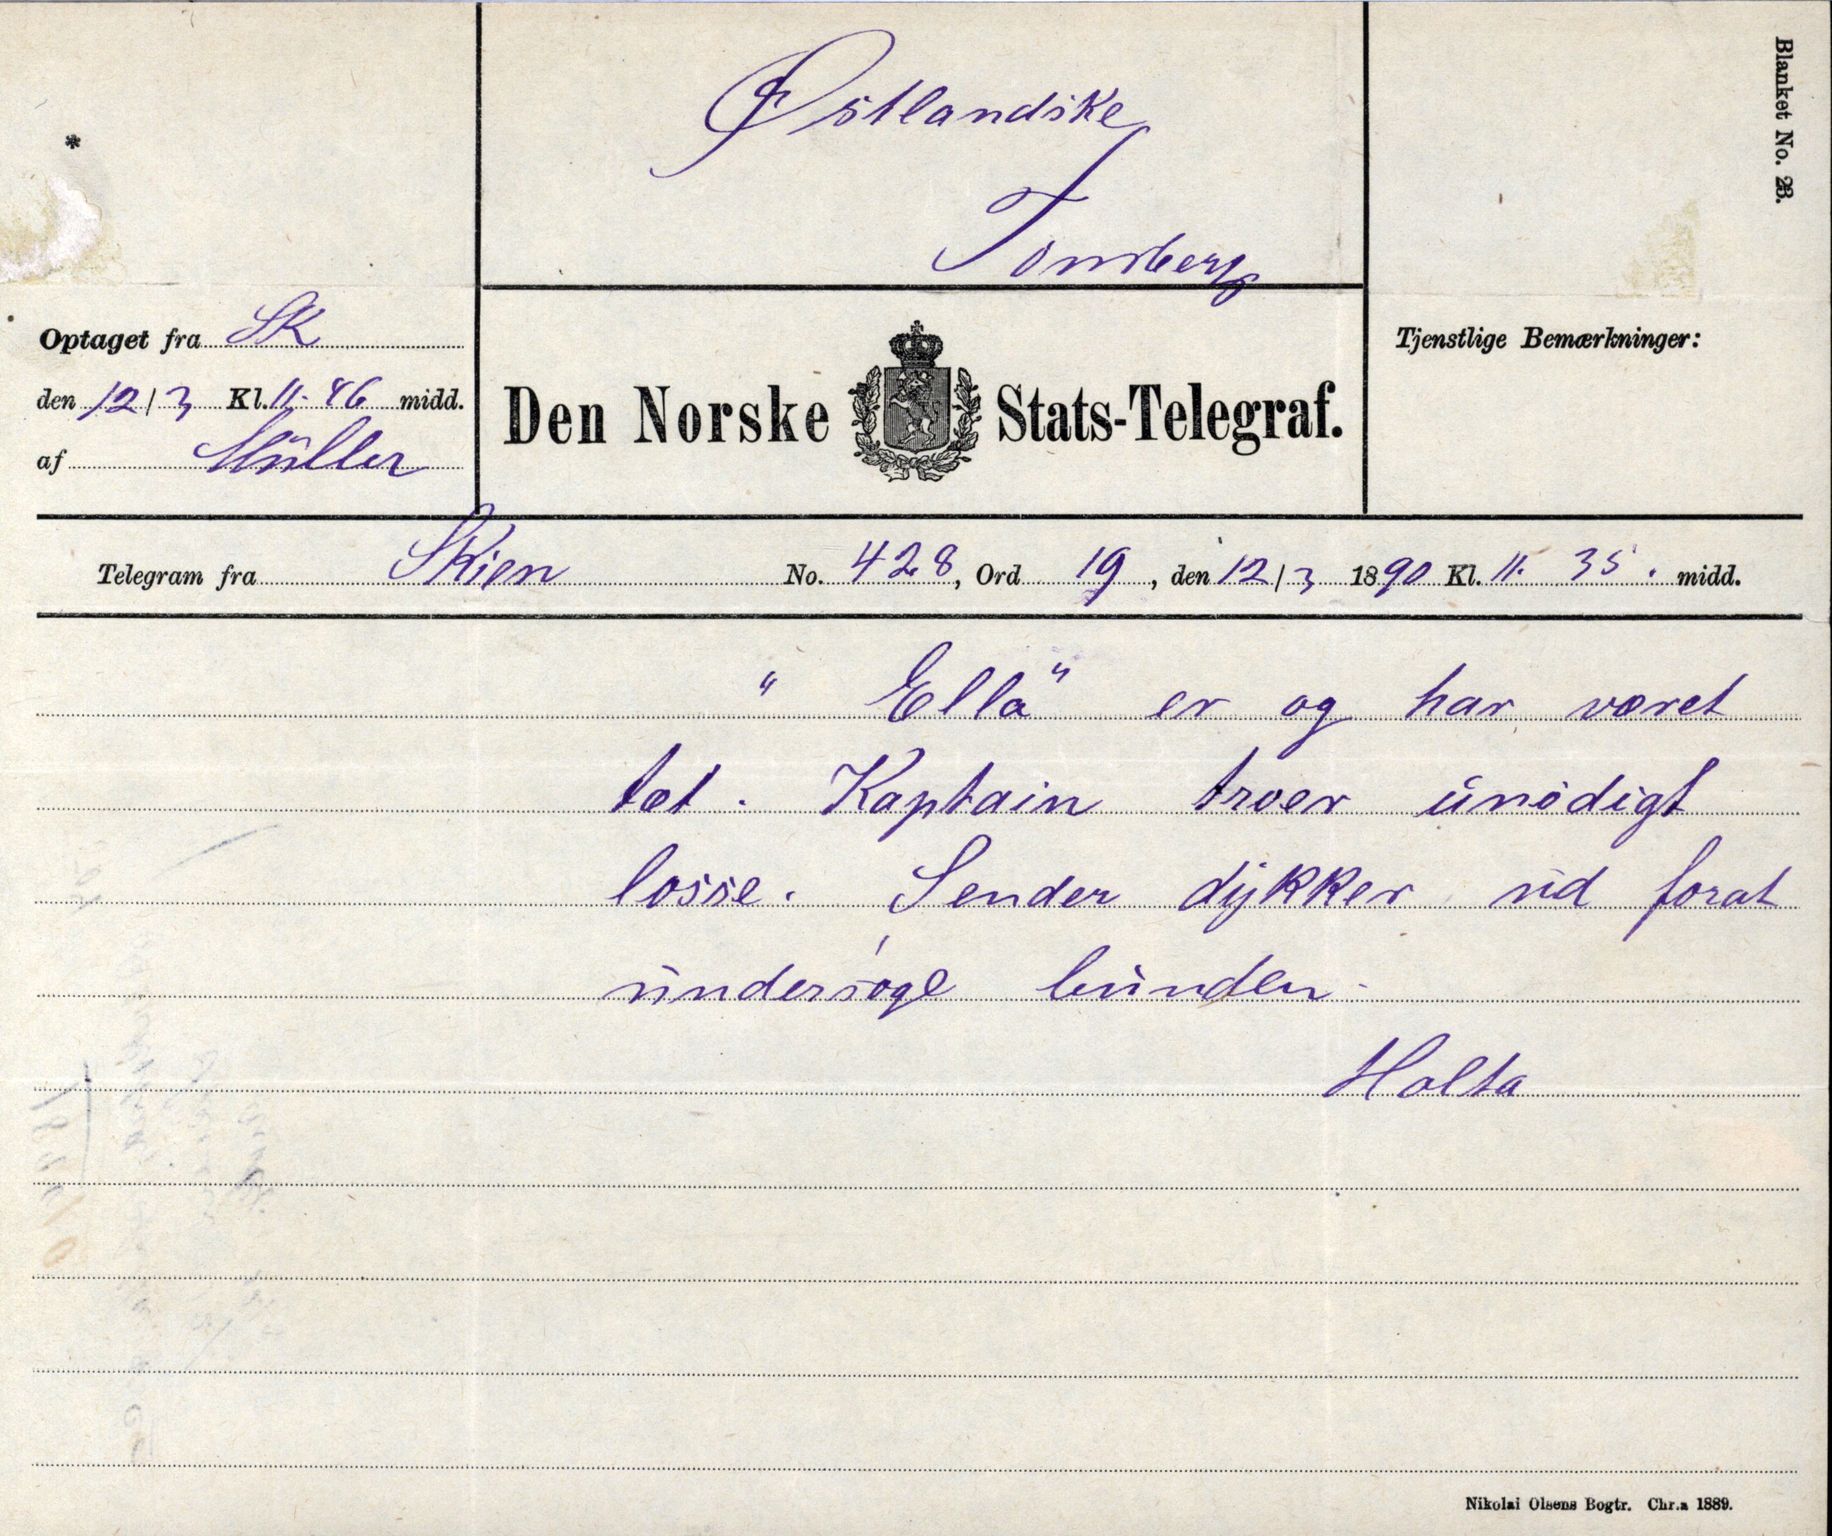 Blanket No. 23.
*
Østlandske
Tønsberg
Optaget fra SK
den 12/3 Kl. 11.46 midd.
af Müller
Den Norske Stats-Telegraf.
Tjenstlige Bemærkninger:
Telegram fra Skien No. 428, Ord 19, den 12/3 1890 Kl. 11.35. midd.
"Ella" er og har været
tæt. Kaptain troer unødigt
losse. Sender dykker ud forat
undersøge bunden.
Holta
Nikolai Olsens Bogtr. Chr.a 1889.